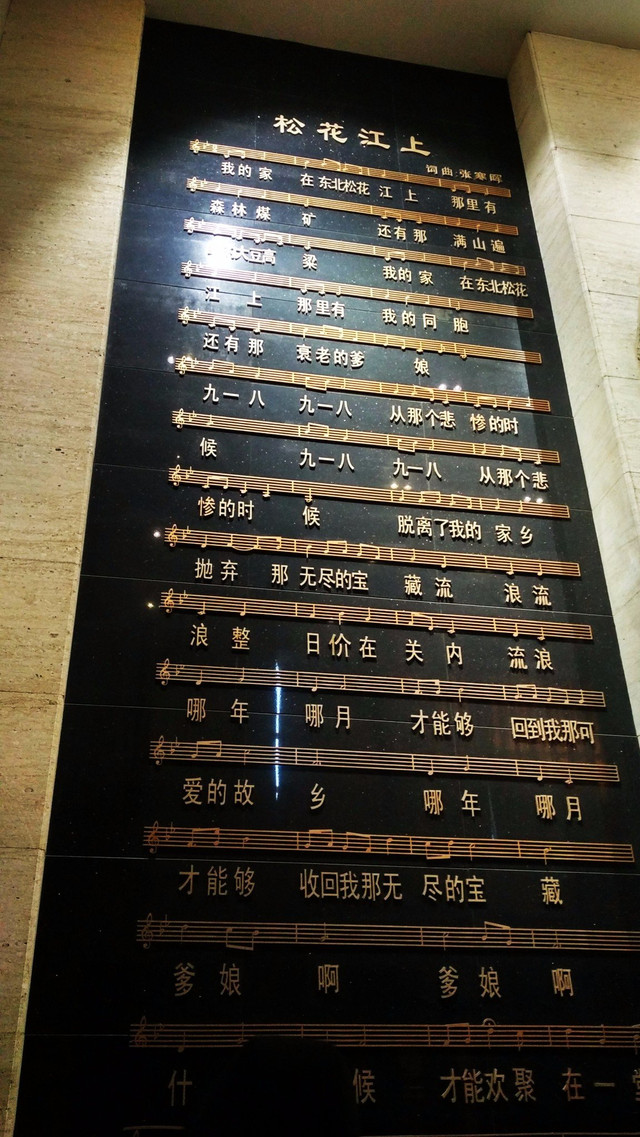 松花江上
词曲 张寒晖
我的家 在东北松花 江 上 那里有
森林煤 矿 还有那 满山遍
大豆高 粱 我的家 在东北松花
江 上 那里有 我的同 胞
还有那 衰老的爹 娘
九一八 九一八 从那个悲 惨的时
候 九一八 九一八 从那个悲
惨的时 候 脱离了我的 家乡
抛弃 那 无尽的宝 藏流 浪流
浪 整 日价在 关 内 流浪
哪 年 哪 月 才能够 回到我那可
爱的故 乡 哪 年 哪 月
才能够 收回我那无 尽的宝 藏
爹 娘 啊 爹 娘 啊
什 候 才能欢 聚 在 一